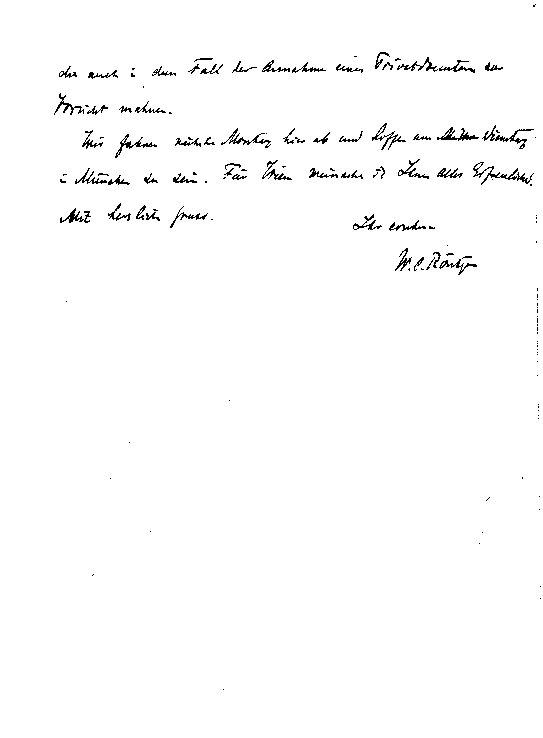 die auch in dem Fall der Annahme eines Privatdocenten zur
Vorsicht mahnen.
Wir fahren nächsten Montag hier ab und hoffen am Dienstag
in München zu sein. Für Wien wünsche ich Ihnen alles Erfreuliche.
Mit herzlichem Gruss.
Ihr
W. C. Röntgen